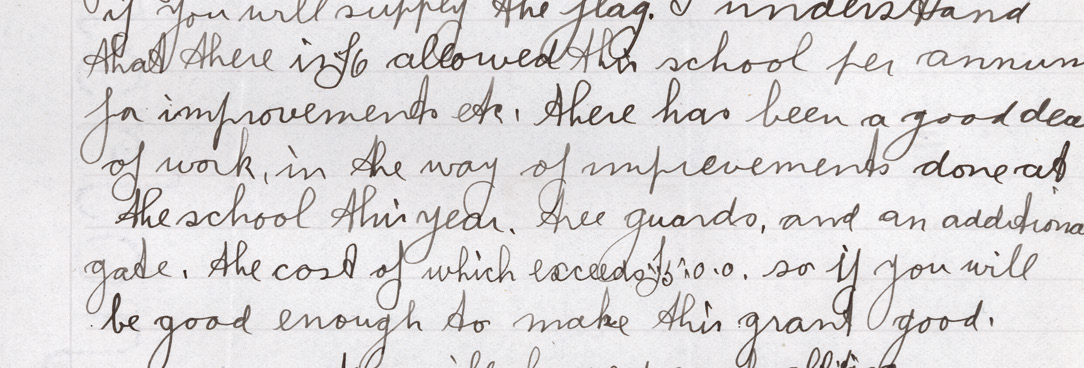 if you will supply the flag. I understand
that there is £6 allowed this school per annum
for improvements etc. there has been a good dea
of work, in the way of improvements done at
the school this year. tree guards, and an additiona
gate. the cost of which exceeds £5.0.0. so if you will
be good enough to make this grant good.